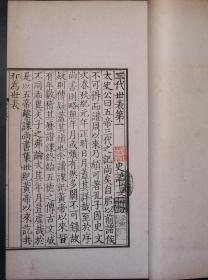 三代世表第一 史記十三
太史公曰五帝三代之記尚矣自殷以前諸侯
不可得而譜周以來乃頗可著孔子因史文
次春秋紀元年正時日月蓋其詳哉至於序
尚書則略無年月或頗有然多闕不可錄故
疑則傳疑蓋其慎也余讀諜記黃帝以來皆
有年數稽其曆譜諜終始五德之傳古文咸
不同乖異夫子之弗論次其年月豈虛哉於
是以五帝繫諜尚書集世紀黃帝以來訖共
和為世表